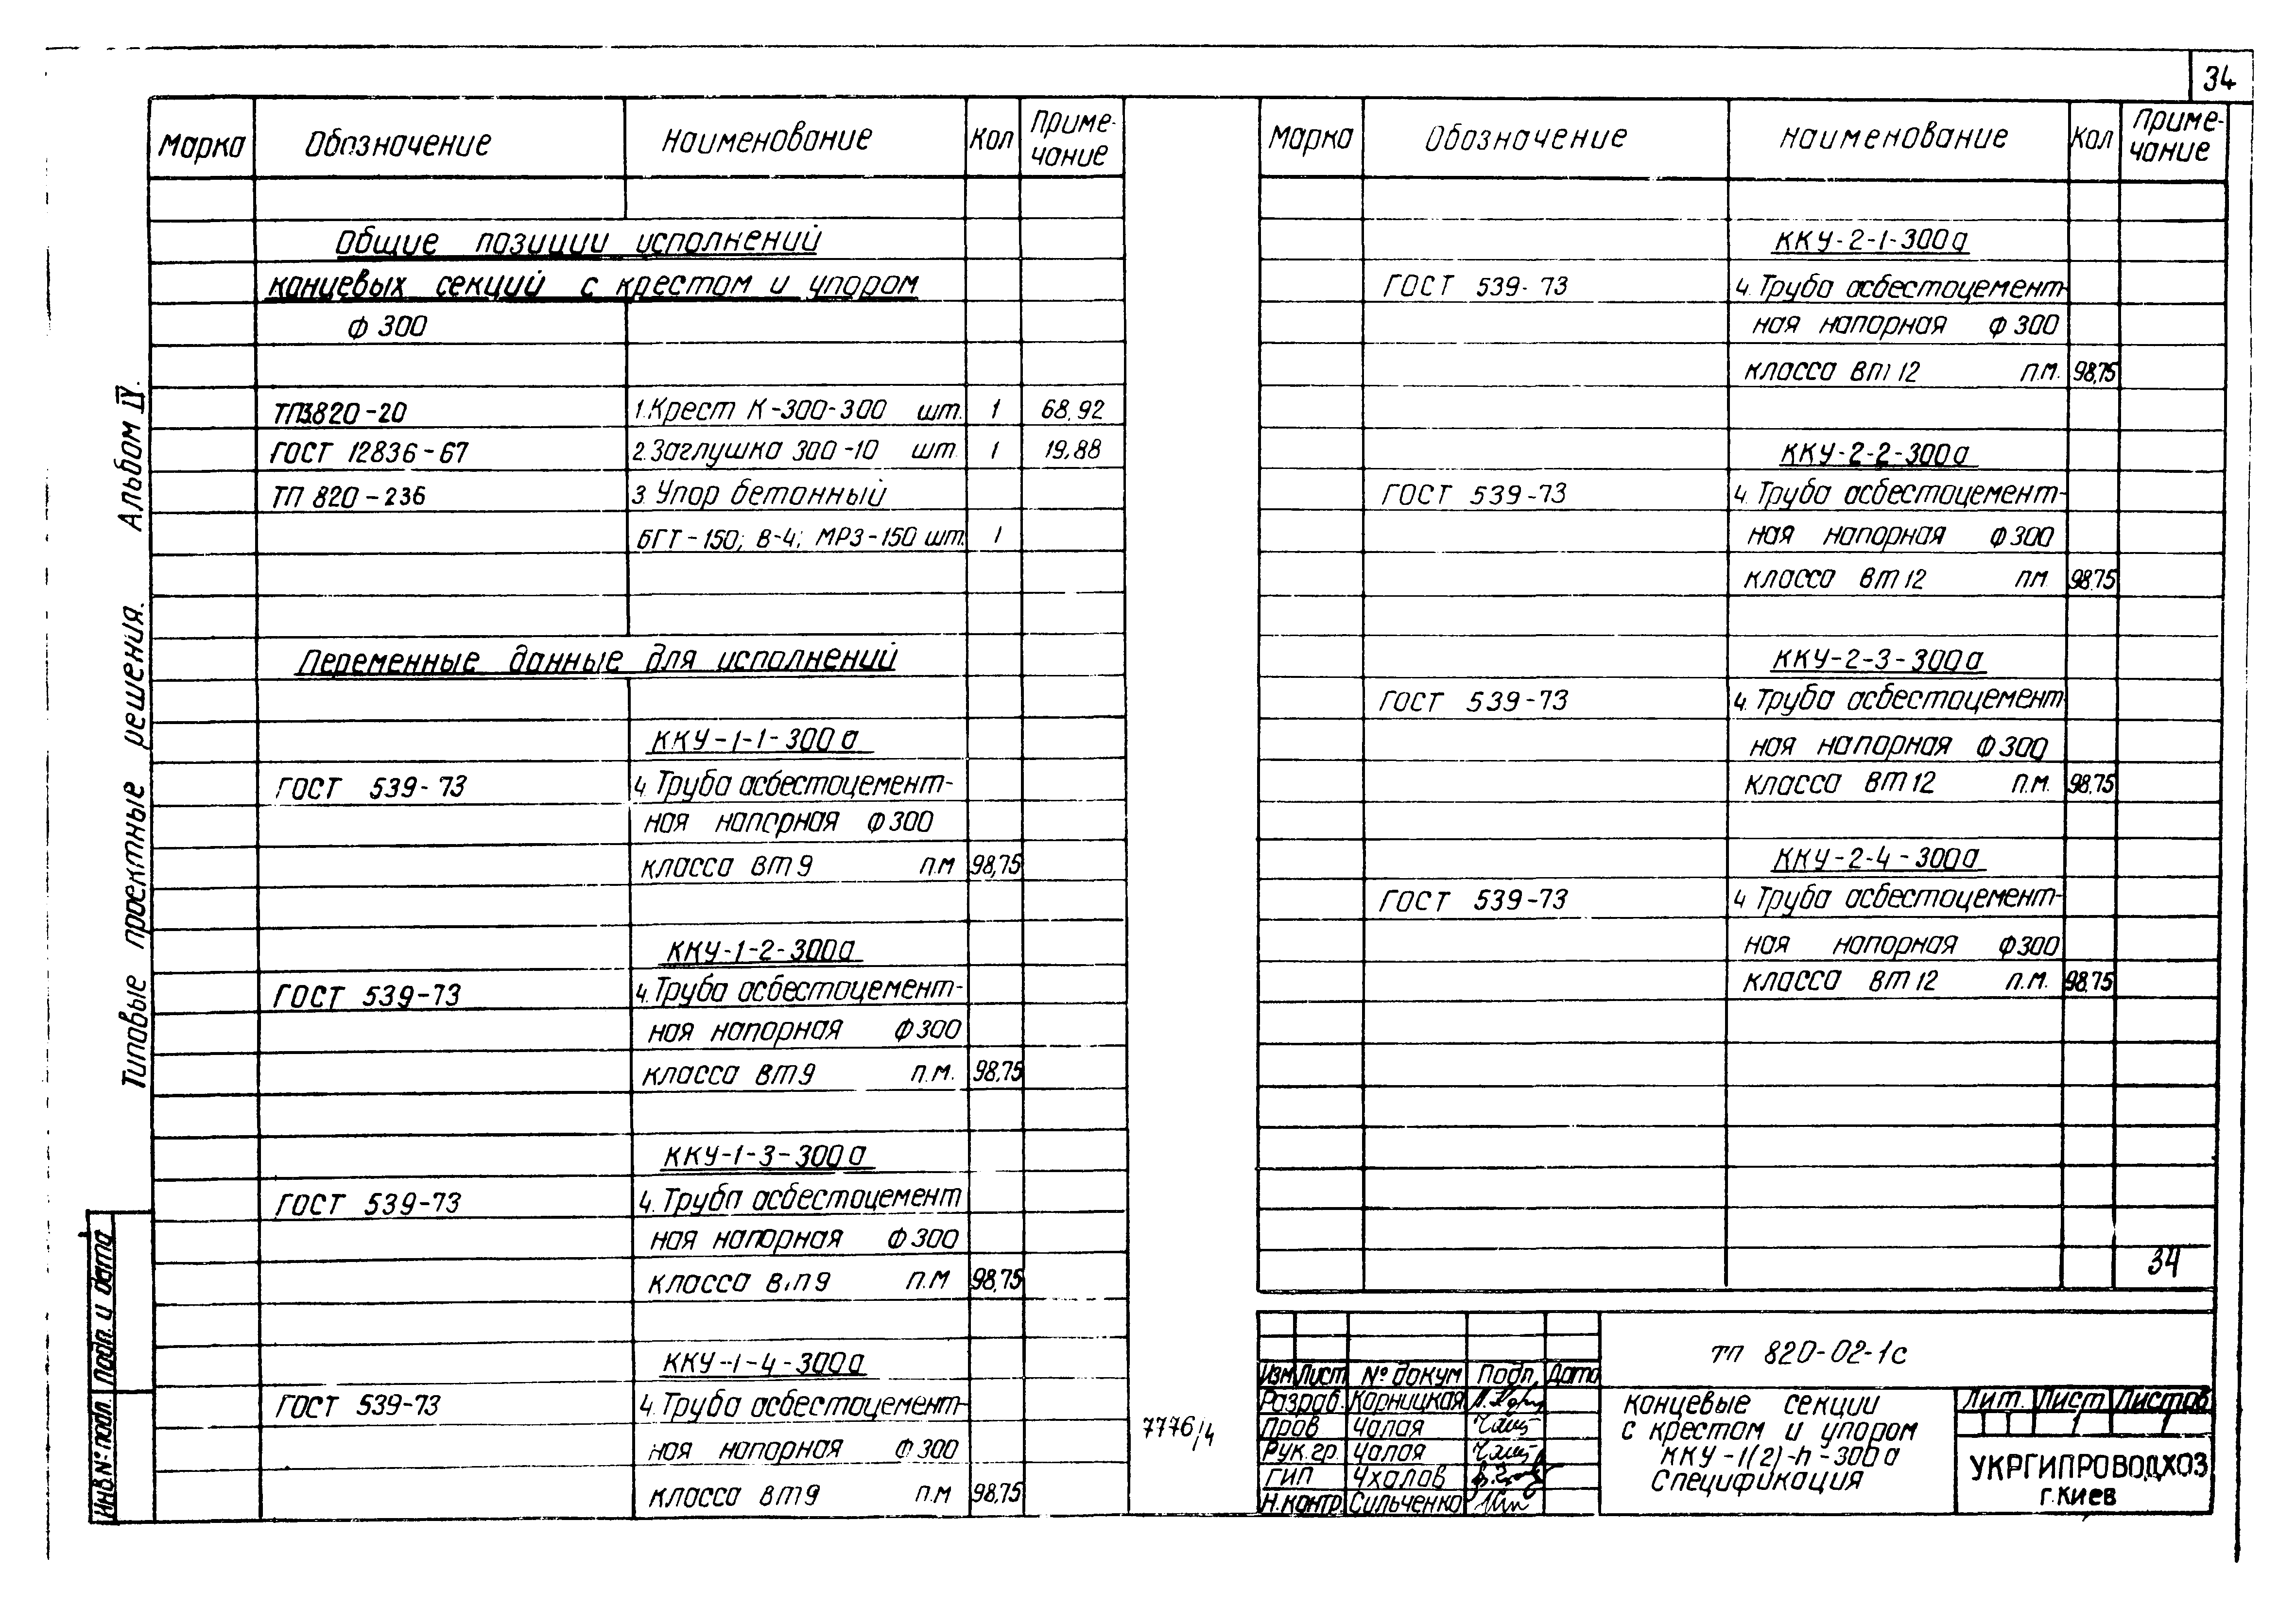 34
Марка Обозначение Наименование Кол Приме-
чание
Общие позиции исполнений
концевых секций с крестом и упором
Ф 300
ТП3.820-20 1.Крест К-300-300 шт. 1 68.92
ГОСТ 12836-67 2.Заглушка 300-10 шт. 1 19.88
ТП 820-236 3 Упор бетонный
БГТ-150; В-4; МРЗ-150 шт. 1
Переменные данные для исполнений
ККУ-1-1-300а
ГОСТ 539-73 4. Труба асбестоцемент-
ная напорная Ф300
класса ВТ9 п.м 98,75
ККУ-1-2-300а
ГОСТ 539-73 4. Труба асбестоцемент-
ная напорная Ф300
класса ВТ9 п.м. 98,75
ККУ-1-3-300а
ГОСТ 539-73 4. Труба асбестоцемент
ная напорная Ф300
класса ВТ9 п.м 98,75
ККУ-1-4-300а
ГОСТ 539-73 4. Труба асбестоцемент-
ная напорная Ф300
класса ВТ9 п.м 98,75
Марка Обозначение Наименование Кол Приме-
чание
ККУ-2-1-300а
ГОСТ 539-73 4. Труба асбестоцемент-
ная напорная Ф300
класса ВТ12 п.м. 98,75
ККУ-2-2-300а
ГОСТ 539-73 4. Труба асбестоцемент-
ная напорная Ф300
класса ВТ12 п.м. 98.75
ККУ-2-3-300а
ГОСТ 539-73 4. Труба асбестоцемент
ная напорная Ф300
класса ВТ12 п.м. 98,75
ККУ-2-4-300а
ГОСТ 539-73 4 Труба асбестоцемент-
ная напорная Ф300
класса ВТ12 п.м. 98.75
34
Типовые проектные решения. Альбом IV.
Инв.№ подл. Подп. и дата
7776/4
Изм Лист № докум Подп. Дата
Разраб. Корницкая
Пров Чалая
Рук.гр. Чалая
ГИП Чхалов
Н.контр. Сильченко
тп 820-02-1с
Концевые секции
с крестом и упором
ККУ-1(2)-n-300а
Спецификация
Лит. Лист Листов
1 1
УКРГИПРОВОДХОЗ
г.Киев